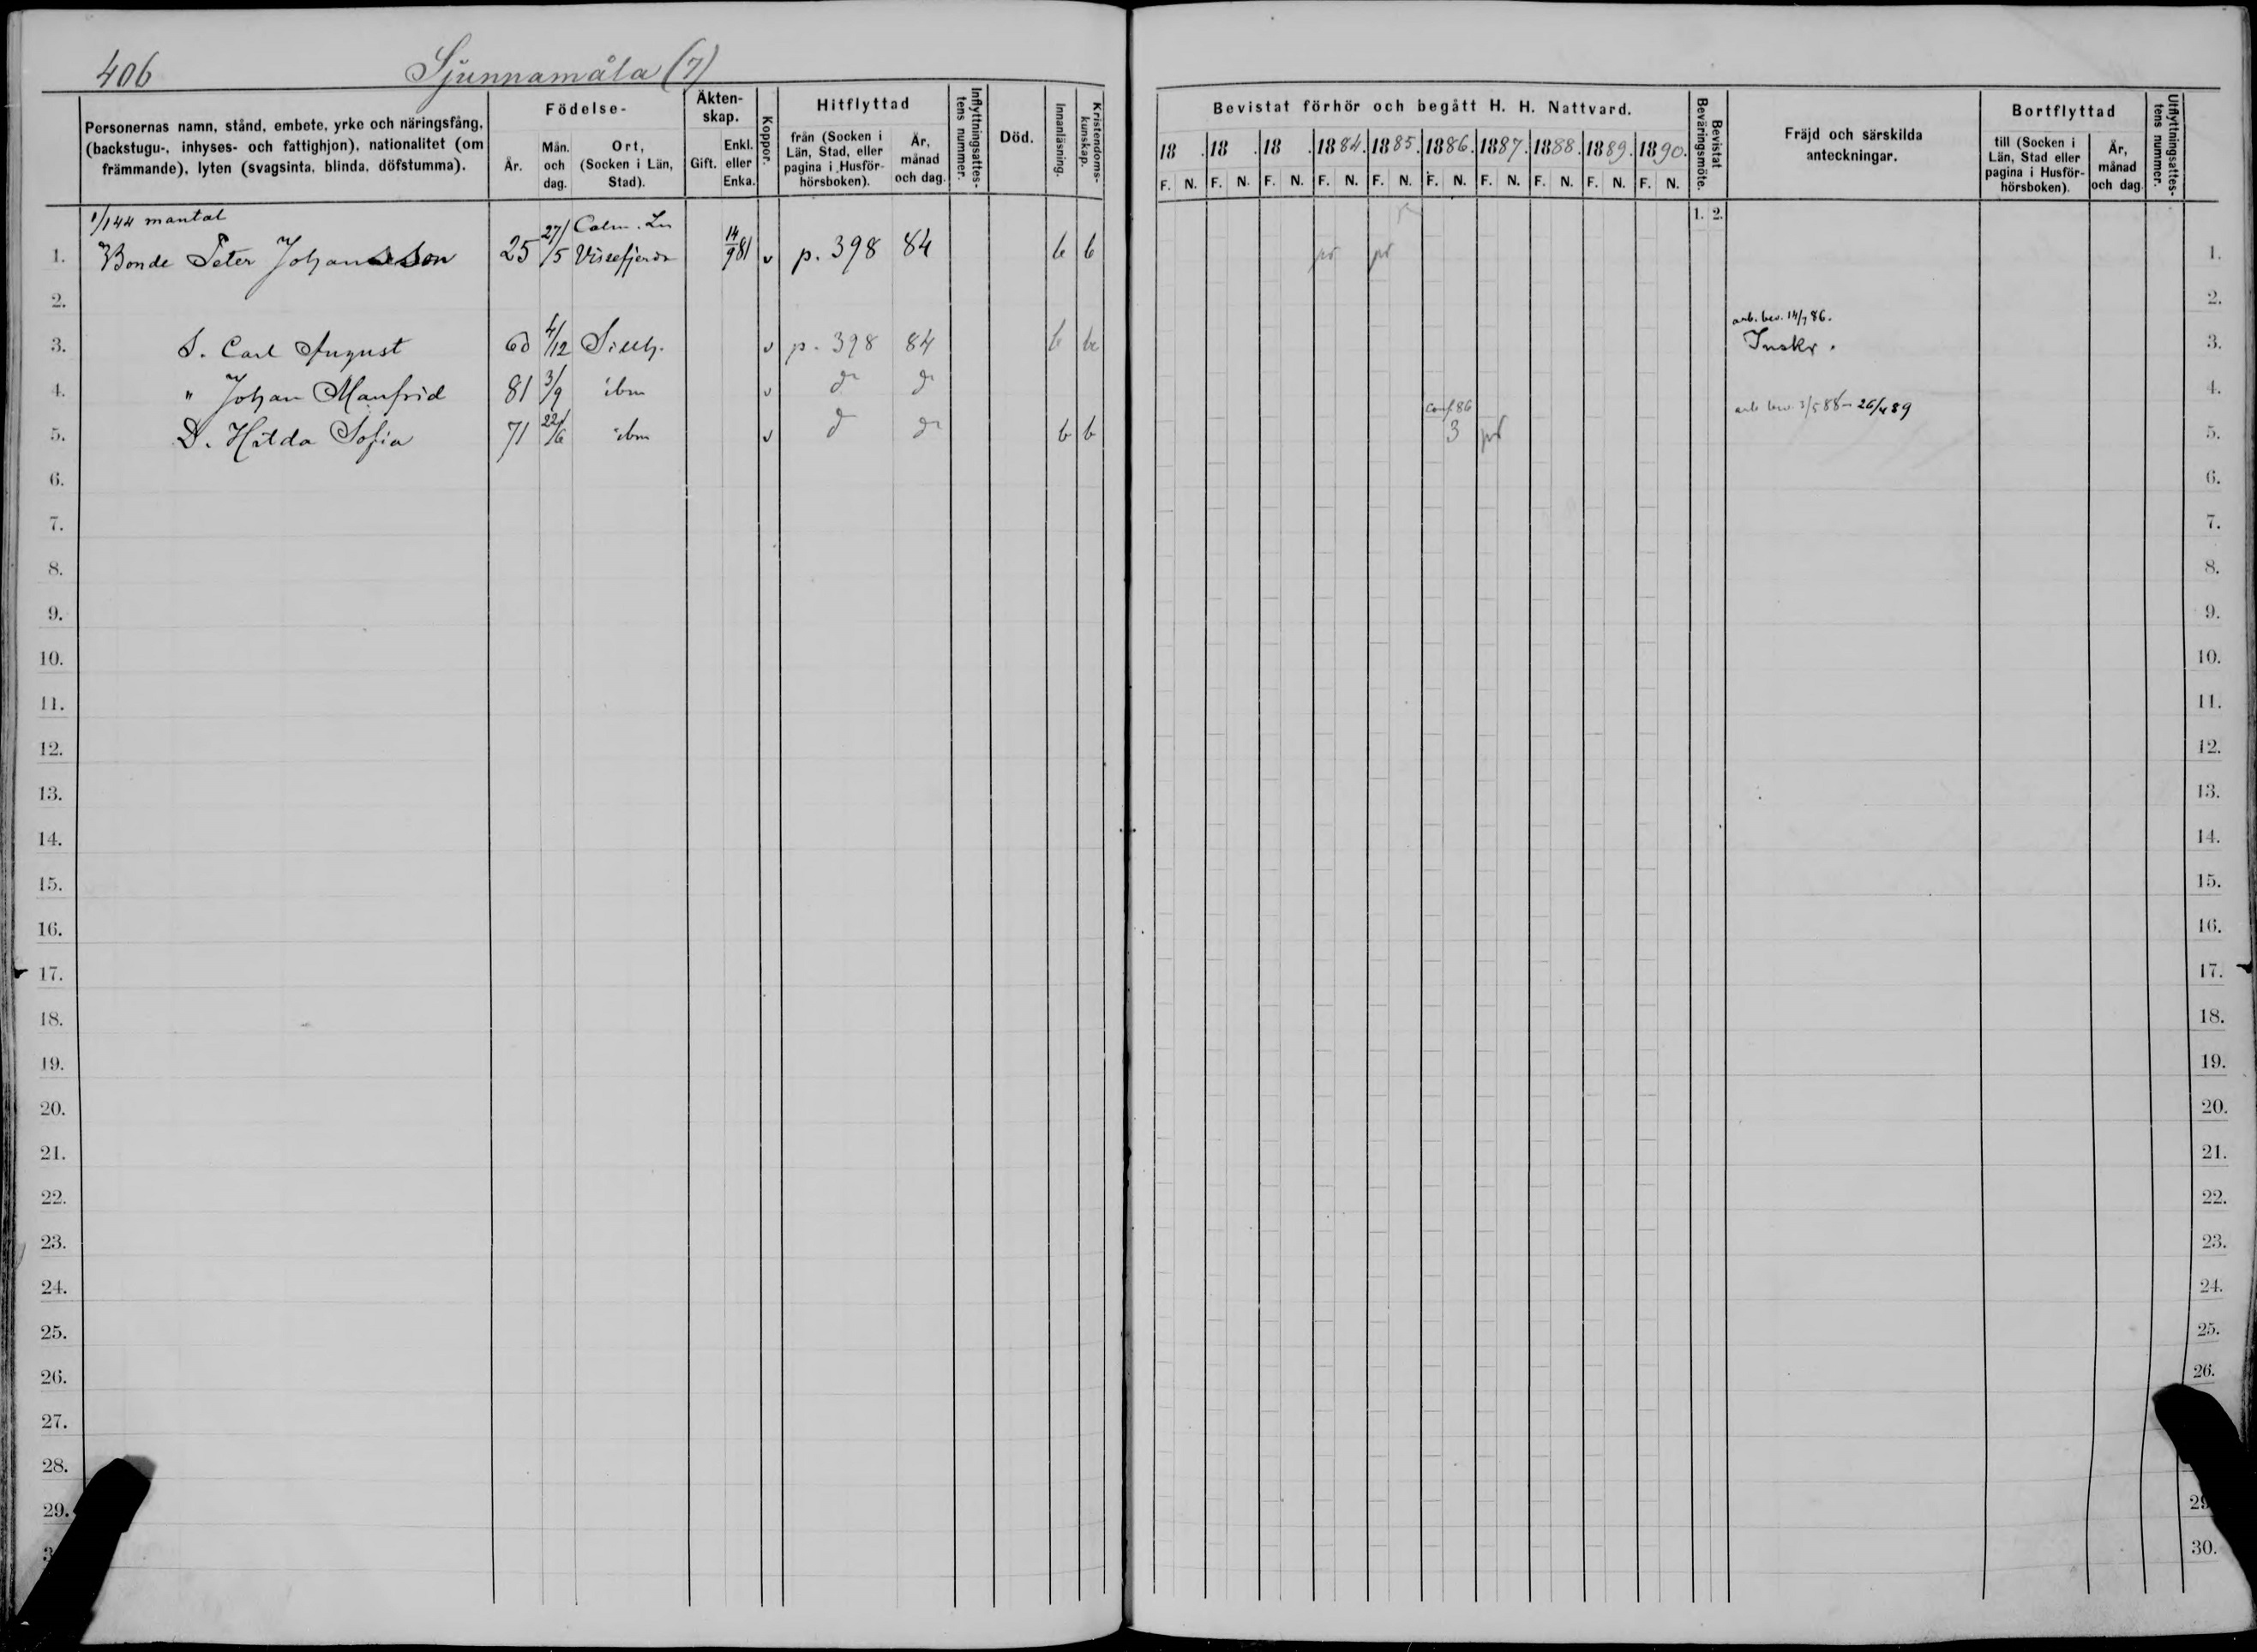 406 Sjunnamåla (7)
Personernas namn, stånd, embete, yrke och näringsfång, (backstugu-, inhyses- och fattighjon), nationalitet (om främmande), lyten (svagsinta, blinda, döfstumma).
Födelse-
År.
Mån. och dag.
Ort, (Socken i Län, Stad).
Äkten-skap.
Gift.
Enkl. eller Enka.
Koppor.
Hitflyttad
från (Socken i Län, Stad, eller pagina i Husför-hörsboken).
År, månad och dag.
Inflyttningsattes-tens nummer.
Död.
Innanläsning.
Kristendoms-kunskap.
1/144 mantal
1. Bonde Peter Johansson 25 27/5 Calm. Ln Vissefjerda 14/9 81 v p. 398 84 b b
2.
3. S. Carl August 60 4/12 v p. 398 84 b b
4. " Johan Manfrid 81 3/9 ibm v do do
5. D. Hilda Sofia 71 22/6 ibm v do do b b
6.
7.
8.
9.
10.
11.
12.
13.
14.
15.
16.
17.
18.
19.
20.
21.
22.
23.
24.
25.
26.
27.
28.
29.
Bevistat förhör och begått H. H. Nattvard.
18 . 18 . 18 . 1884. 1885. 1886. 1887. 1888. 1889. 1890.
F. N. F. N. F. N. F. N. F. N. F. N. F. N. F. N. F. N. F. N.
Bevistat Beväringsmöte.
1. 2.
Fräjd och särskilda anteckningar.
Bortflyttad
till (Socken i Län, Stad eller pagina i Husför-hörsboken).
År, månad och dag.
Utflyttningsattes-tens nummer.
pr pr 1.
2.
arb. bev. 14/7 86.
Inskr. 3.
4.
conf. 86 arb bev. 3/5 88 - 26/4 89
3 pr 5.
6.
7.
8.
9.
10.
11.
12.
13.
14.
15.
16.
17.
18.
19.
20.
21.
22.
23.
24.
25.
26.
29
30.